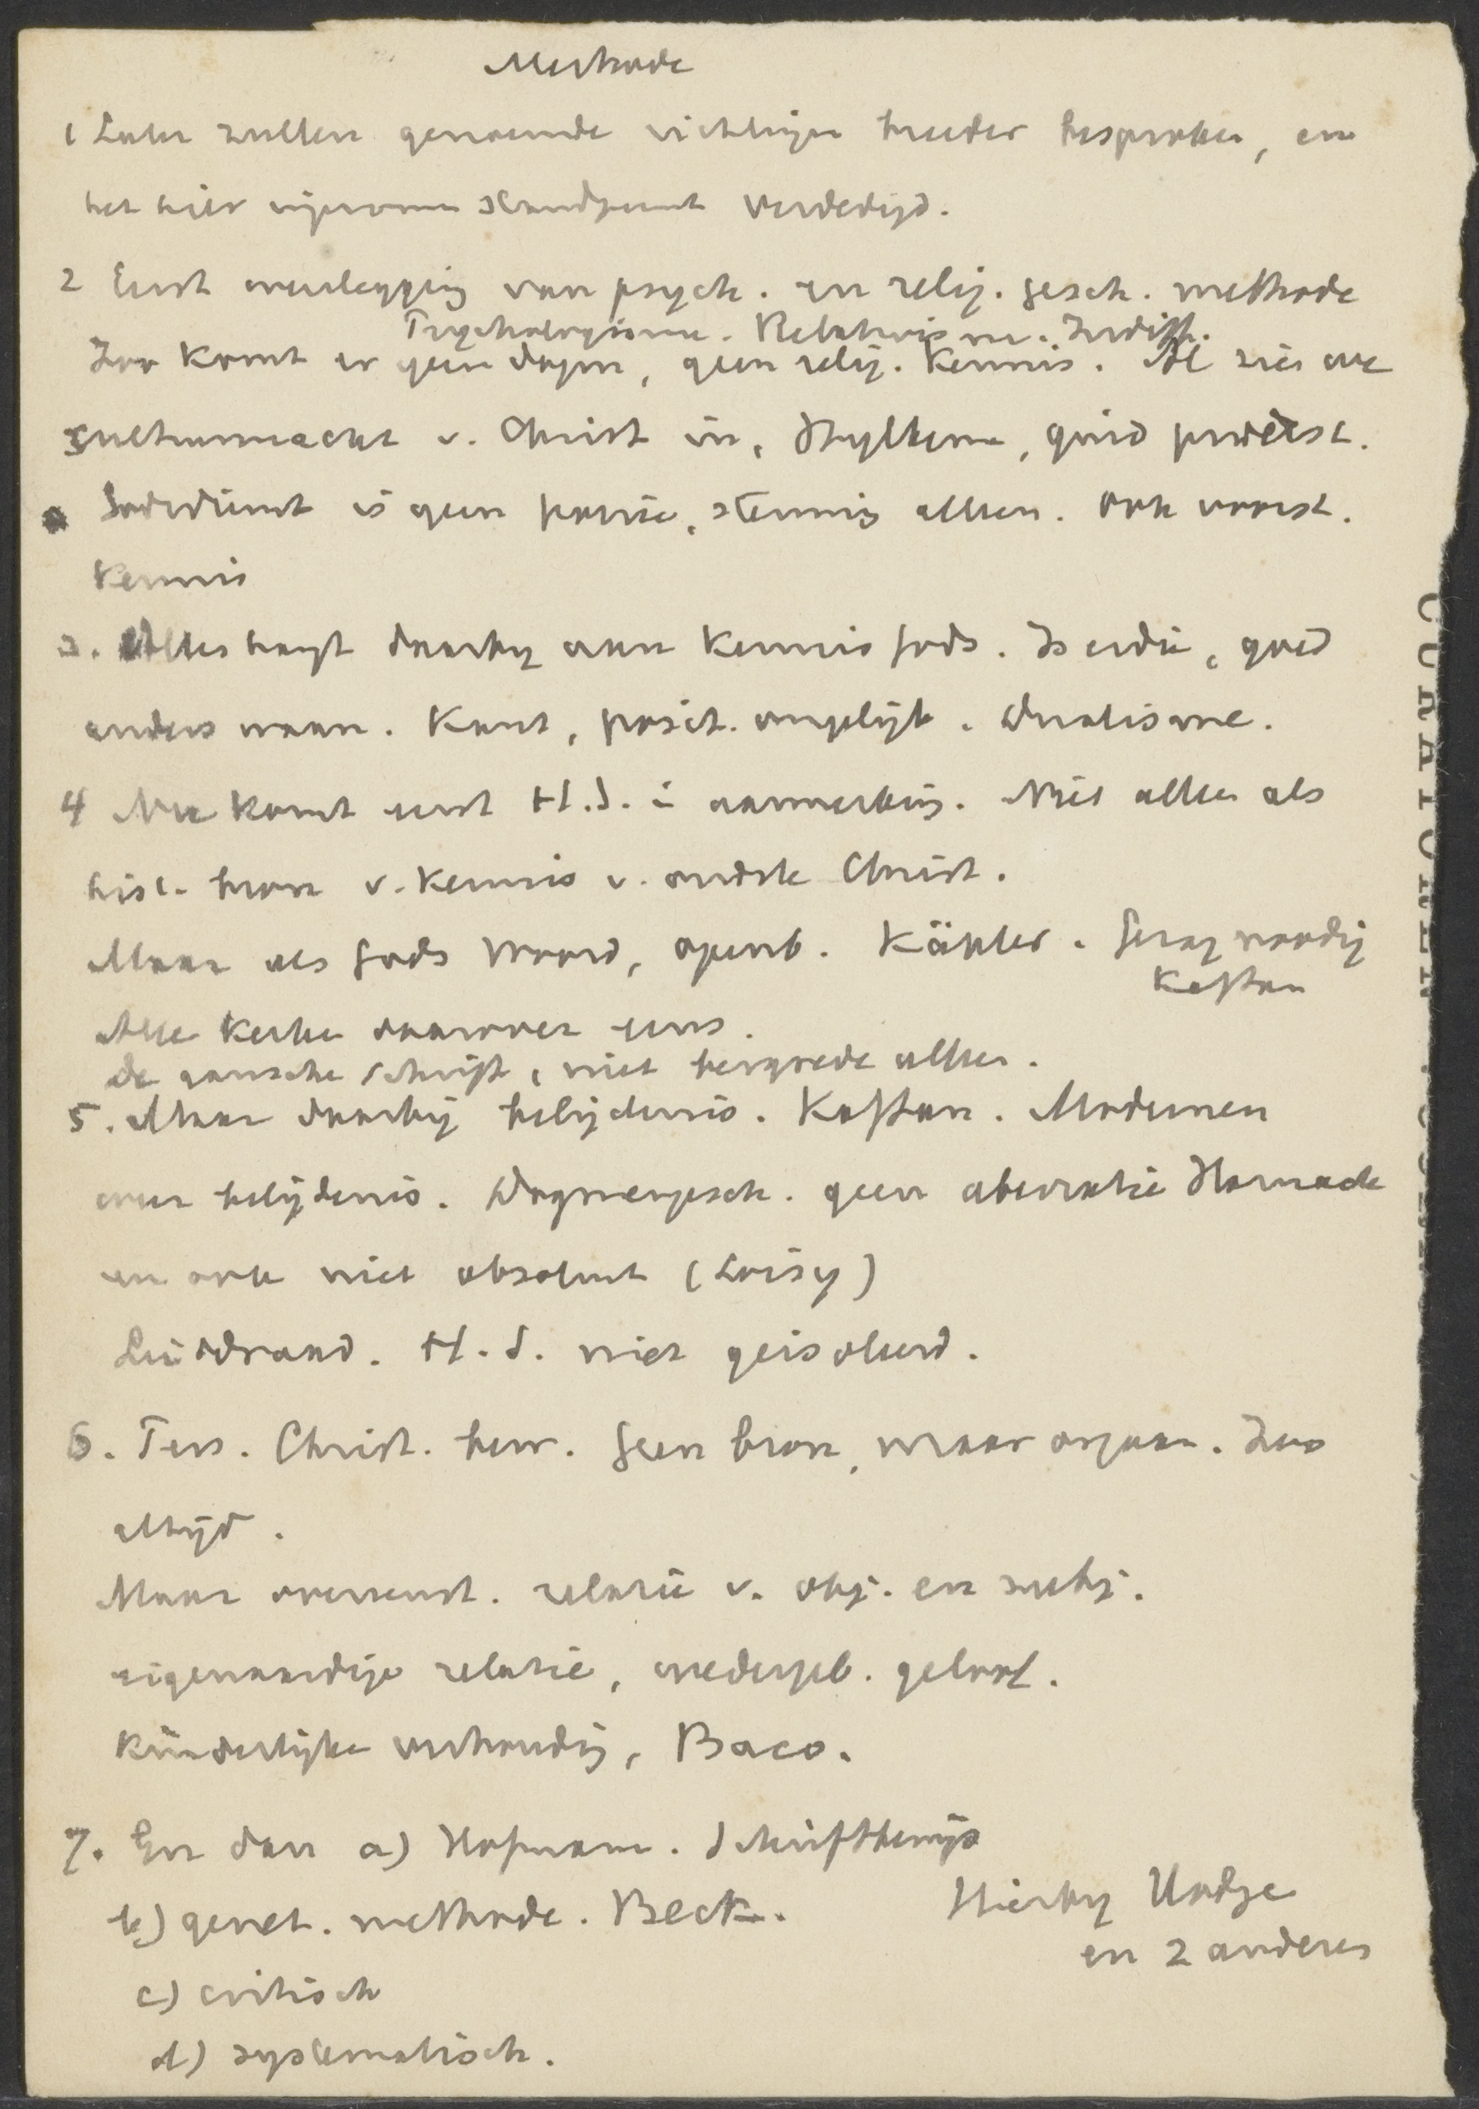 Methode
1 Later zullen genoemde richtingen breeder besproken, en
het hier ingenomen standpunt verdedigd.
2 Eerst wederlegging van psych. en relig. gesch. methode
Psychologisme. Relativisme. Indiff.
Zoo komt er geen dogm, geen relig. Kennis. Al zien we
cultuurmacht v. Christ in, quid prodest.
Godsdienst is geen poëzie, stemming alleen. Ook voorst.
Kennis
3. Alles hangt daarbij aan Kennis Gods. Is er die, goed
anders waan. Kant, posit. onmogelijk. Dualisme.
4 Nu komt eerst H.S. in aanmerking. Niet alleen als
hist. bron v. Kennis v. oudste Christ.
Maar als Gods Woord, openb. Kähler. Gezag noodig
Kaftan
Alle Kerken daarover eens.
de gansche schrift, niet bergrede alleen.
5. Maar daarbij belijdenis. Kaftan. Modernen
over belijdenis. Dogmengesch. geen aberratie Harnack
en ook niet absoluut (Loisy)
H.S. niet geisoleerd.
6. Pers. Christ. bew. Geen bron, maar orgaan. Zoo
altijd.
Maar overeenst. relatie v. obj. en subj.
eigenaardige relatie, wedergeb. geloof.
Kinderlijke verhouding, Baco.
7. En dan a) Hofmann. Schriftbewijs
b) genet. methode. Beck.
Hierbij Hodge
en 2 anderen
c) critisch
d) systematisch.
CURATOREN